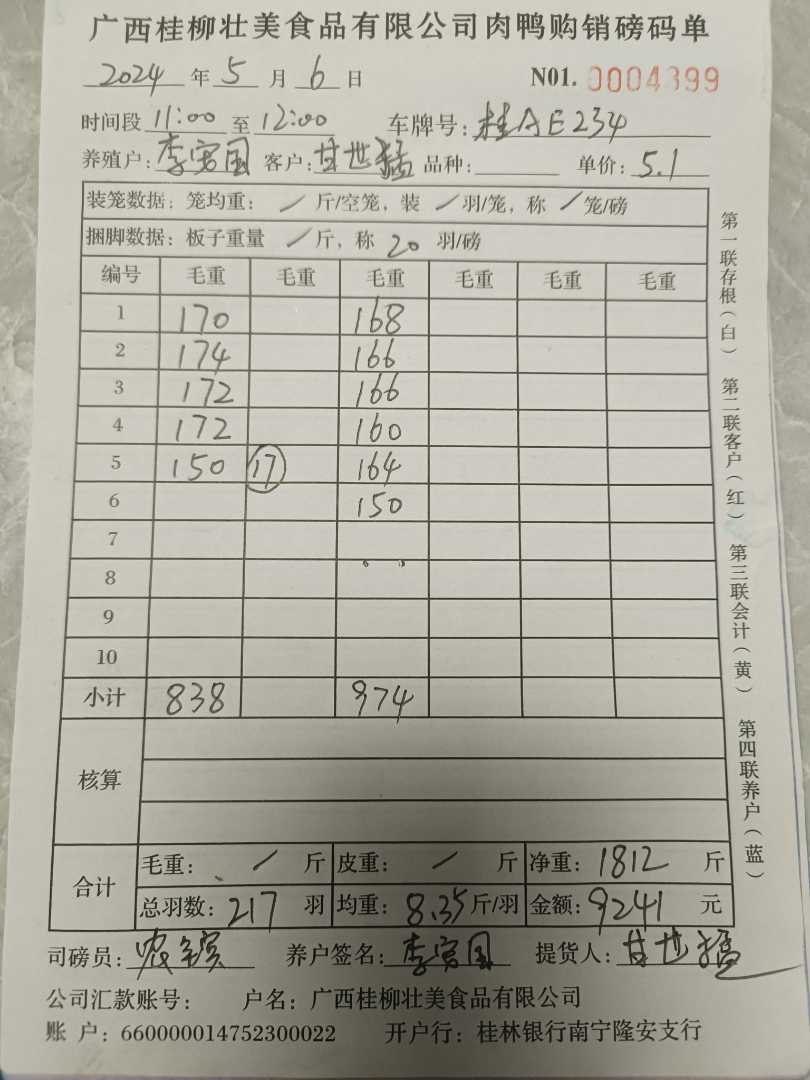 广西桂柳壮美食品有限公司肉鸭购销磅码单
2024 年 5 月 6 日 N01. 0004399
时间段 11:00 至 12:00 车牌号: 桂AE234
养殖户: 李寓国 客户: 甘世猛 品种: 单价: 5.1
装笼数据: 笼均重: / 斤/空笼, 装 / 羽/笼, 称 / 笼/磅
捆脚数据: 板子重量 / 斤, 称 20 羽/磅
编号 毛重 毛重 毛重 毛重 毛重 毛重
1 170 168
2 174 166
3 172 166
4 172 160
5 150 17 164
6 150
7
8
9
10
小计 838 974
核算
合计 毛重: / 斤 皮重: / 斤 净重: 1812 斤
总羽数: 217 羽 均重: 8.35 斤/羽 金额: 9241 元
司磅员: 养户签名: 李寓国 提货人: 甘世猛
公司汇款账号: 户名: 广西桂柳壮美食品有限公司
账 户: 660000014752300022 开户行: 桂林银行南宁隆安支行
第一联存根(白) 第二联客户(红) 第三联会计(黄) 第四联养户(蓝)